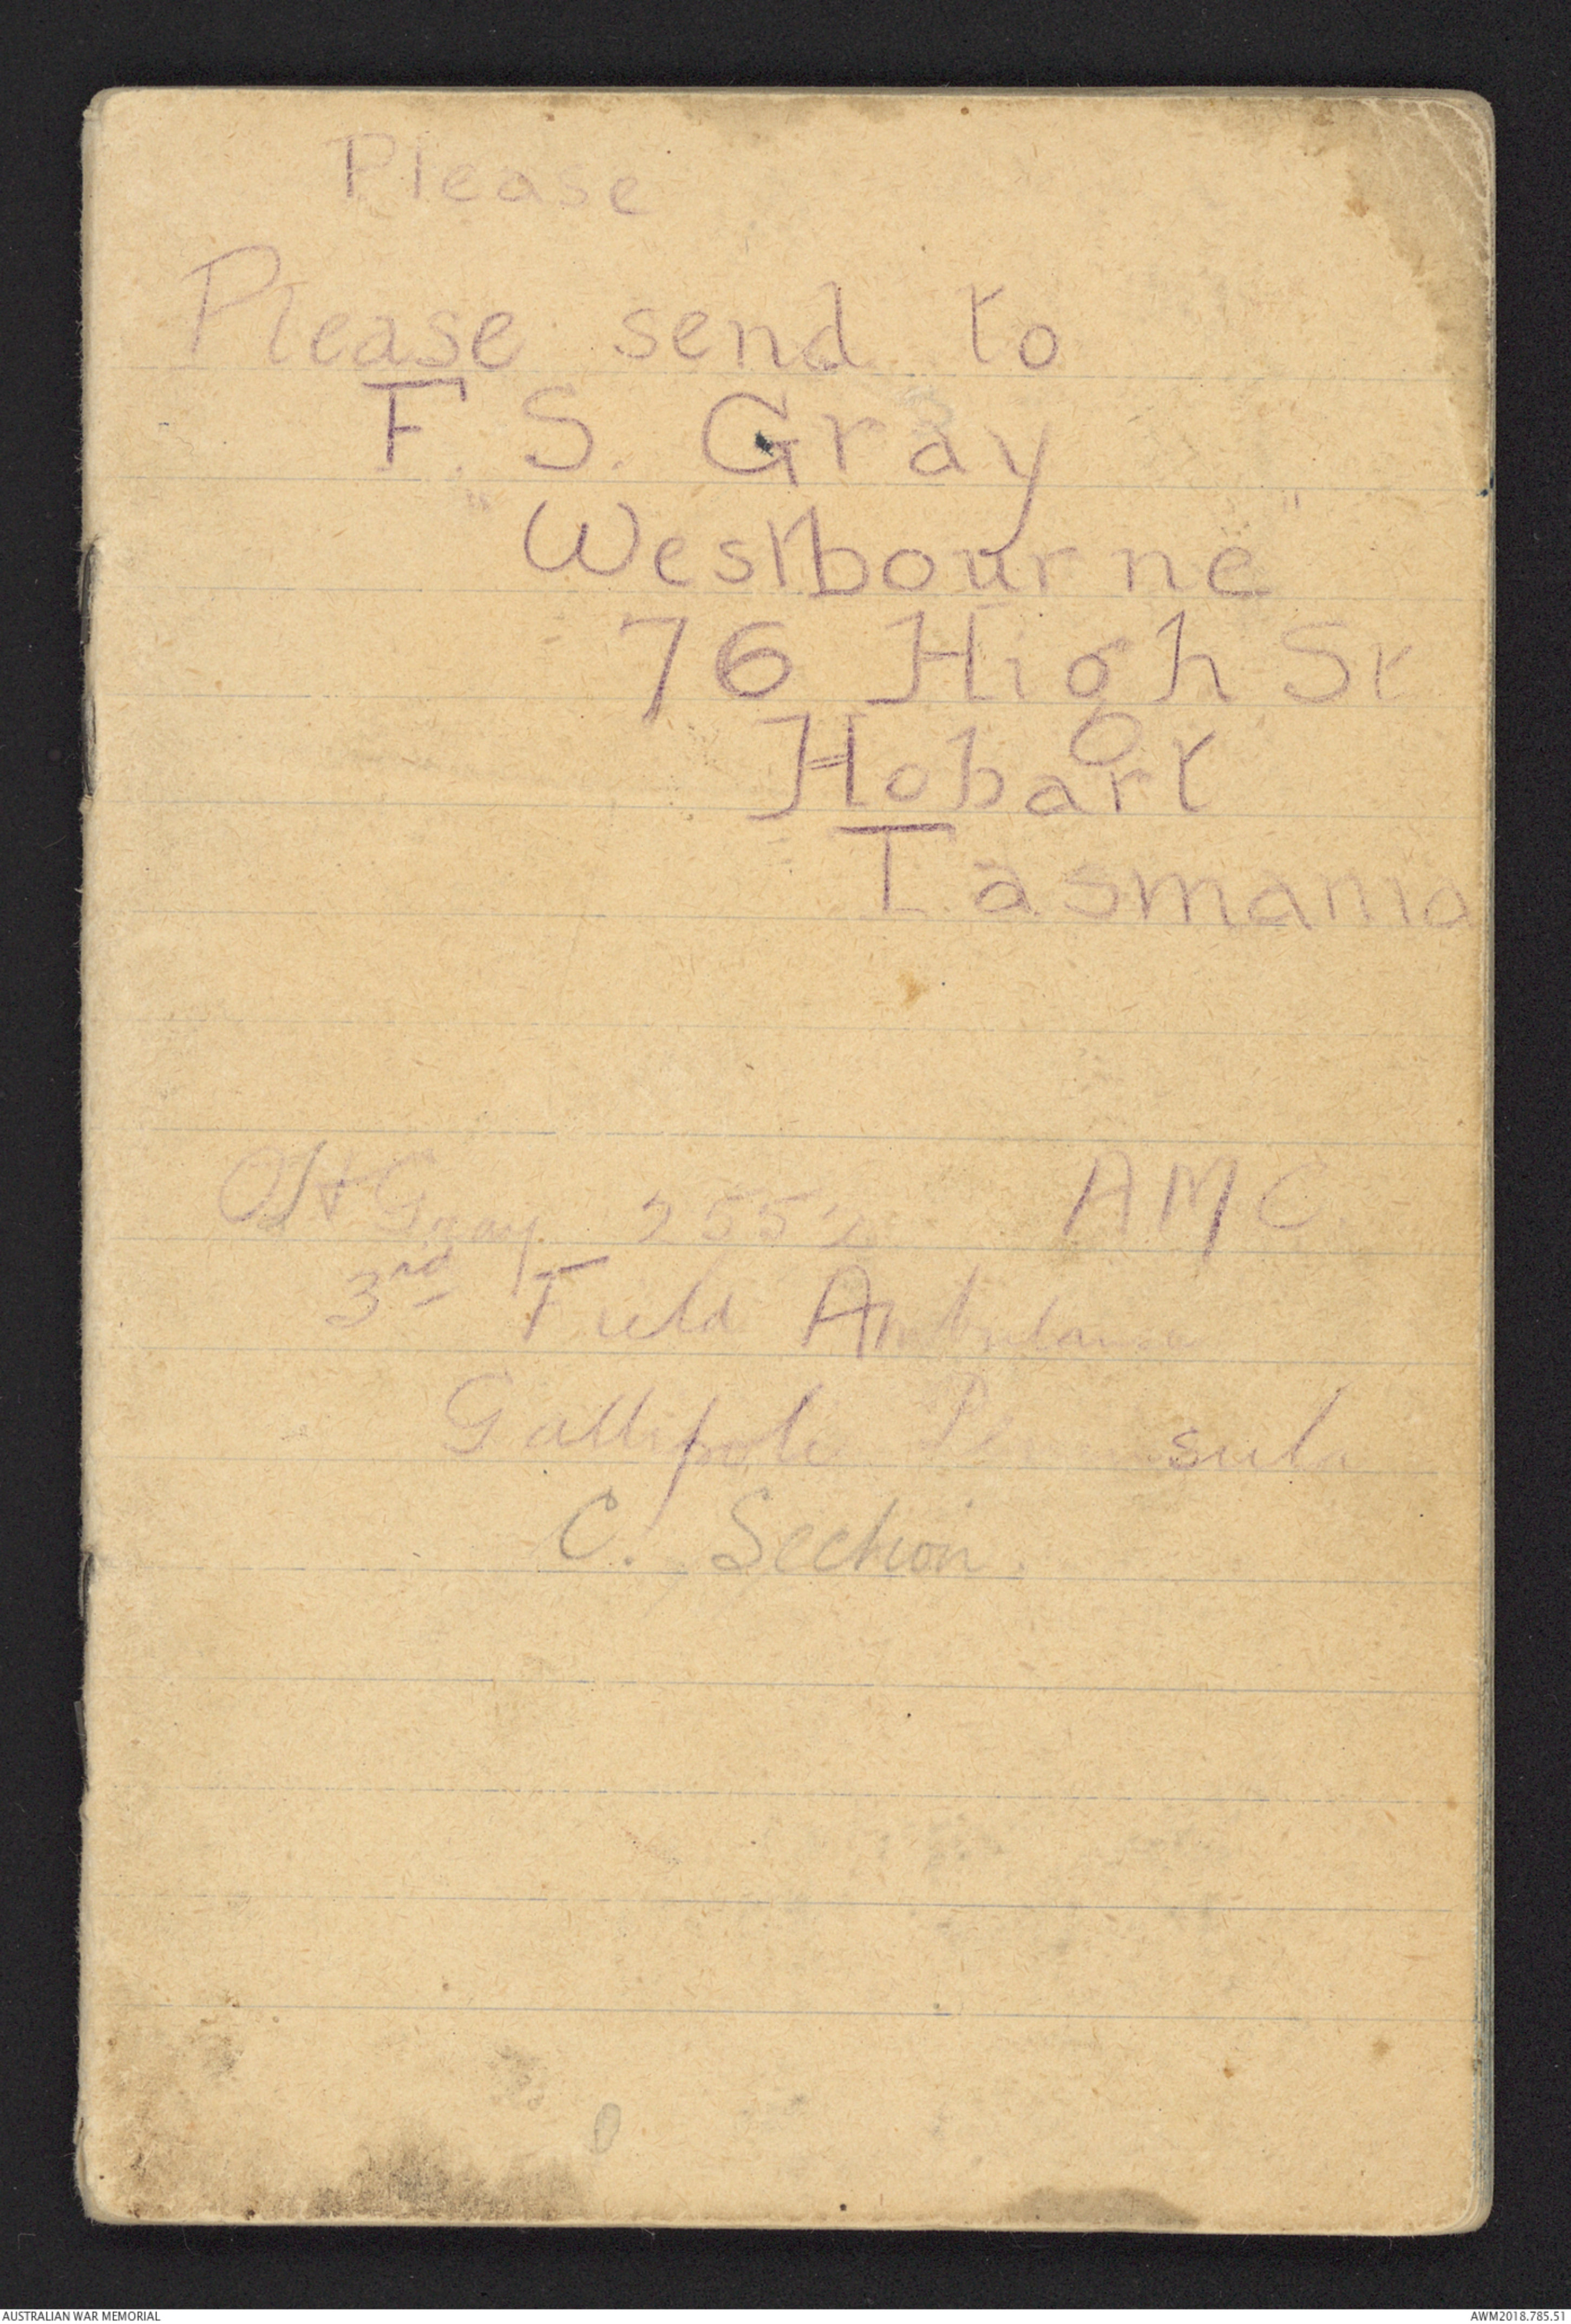 Please
Please send to
F. S. Gray
"Westbourne"
76 High St
Hobart
Tasmania
Gray 2552 AMC
3rd Field Ambulance
Gallipoli Peninsula
C. Section.
AUSTRALIAN WAR MEMORIAL
AWM2018.785.51